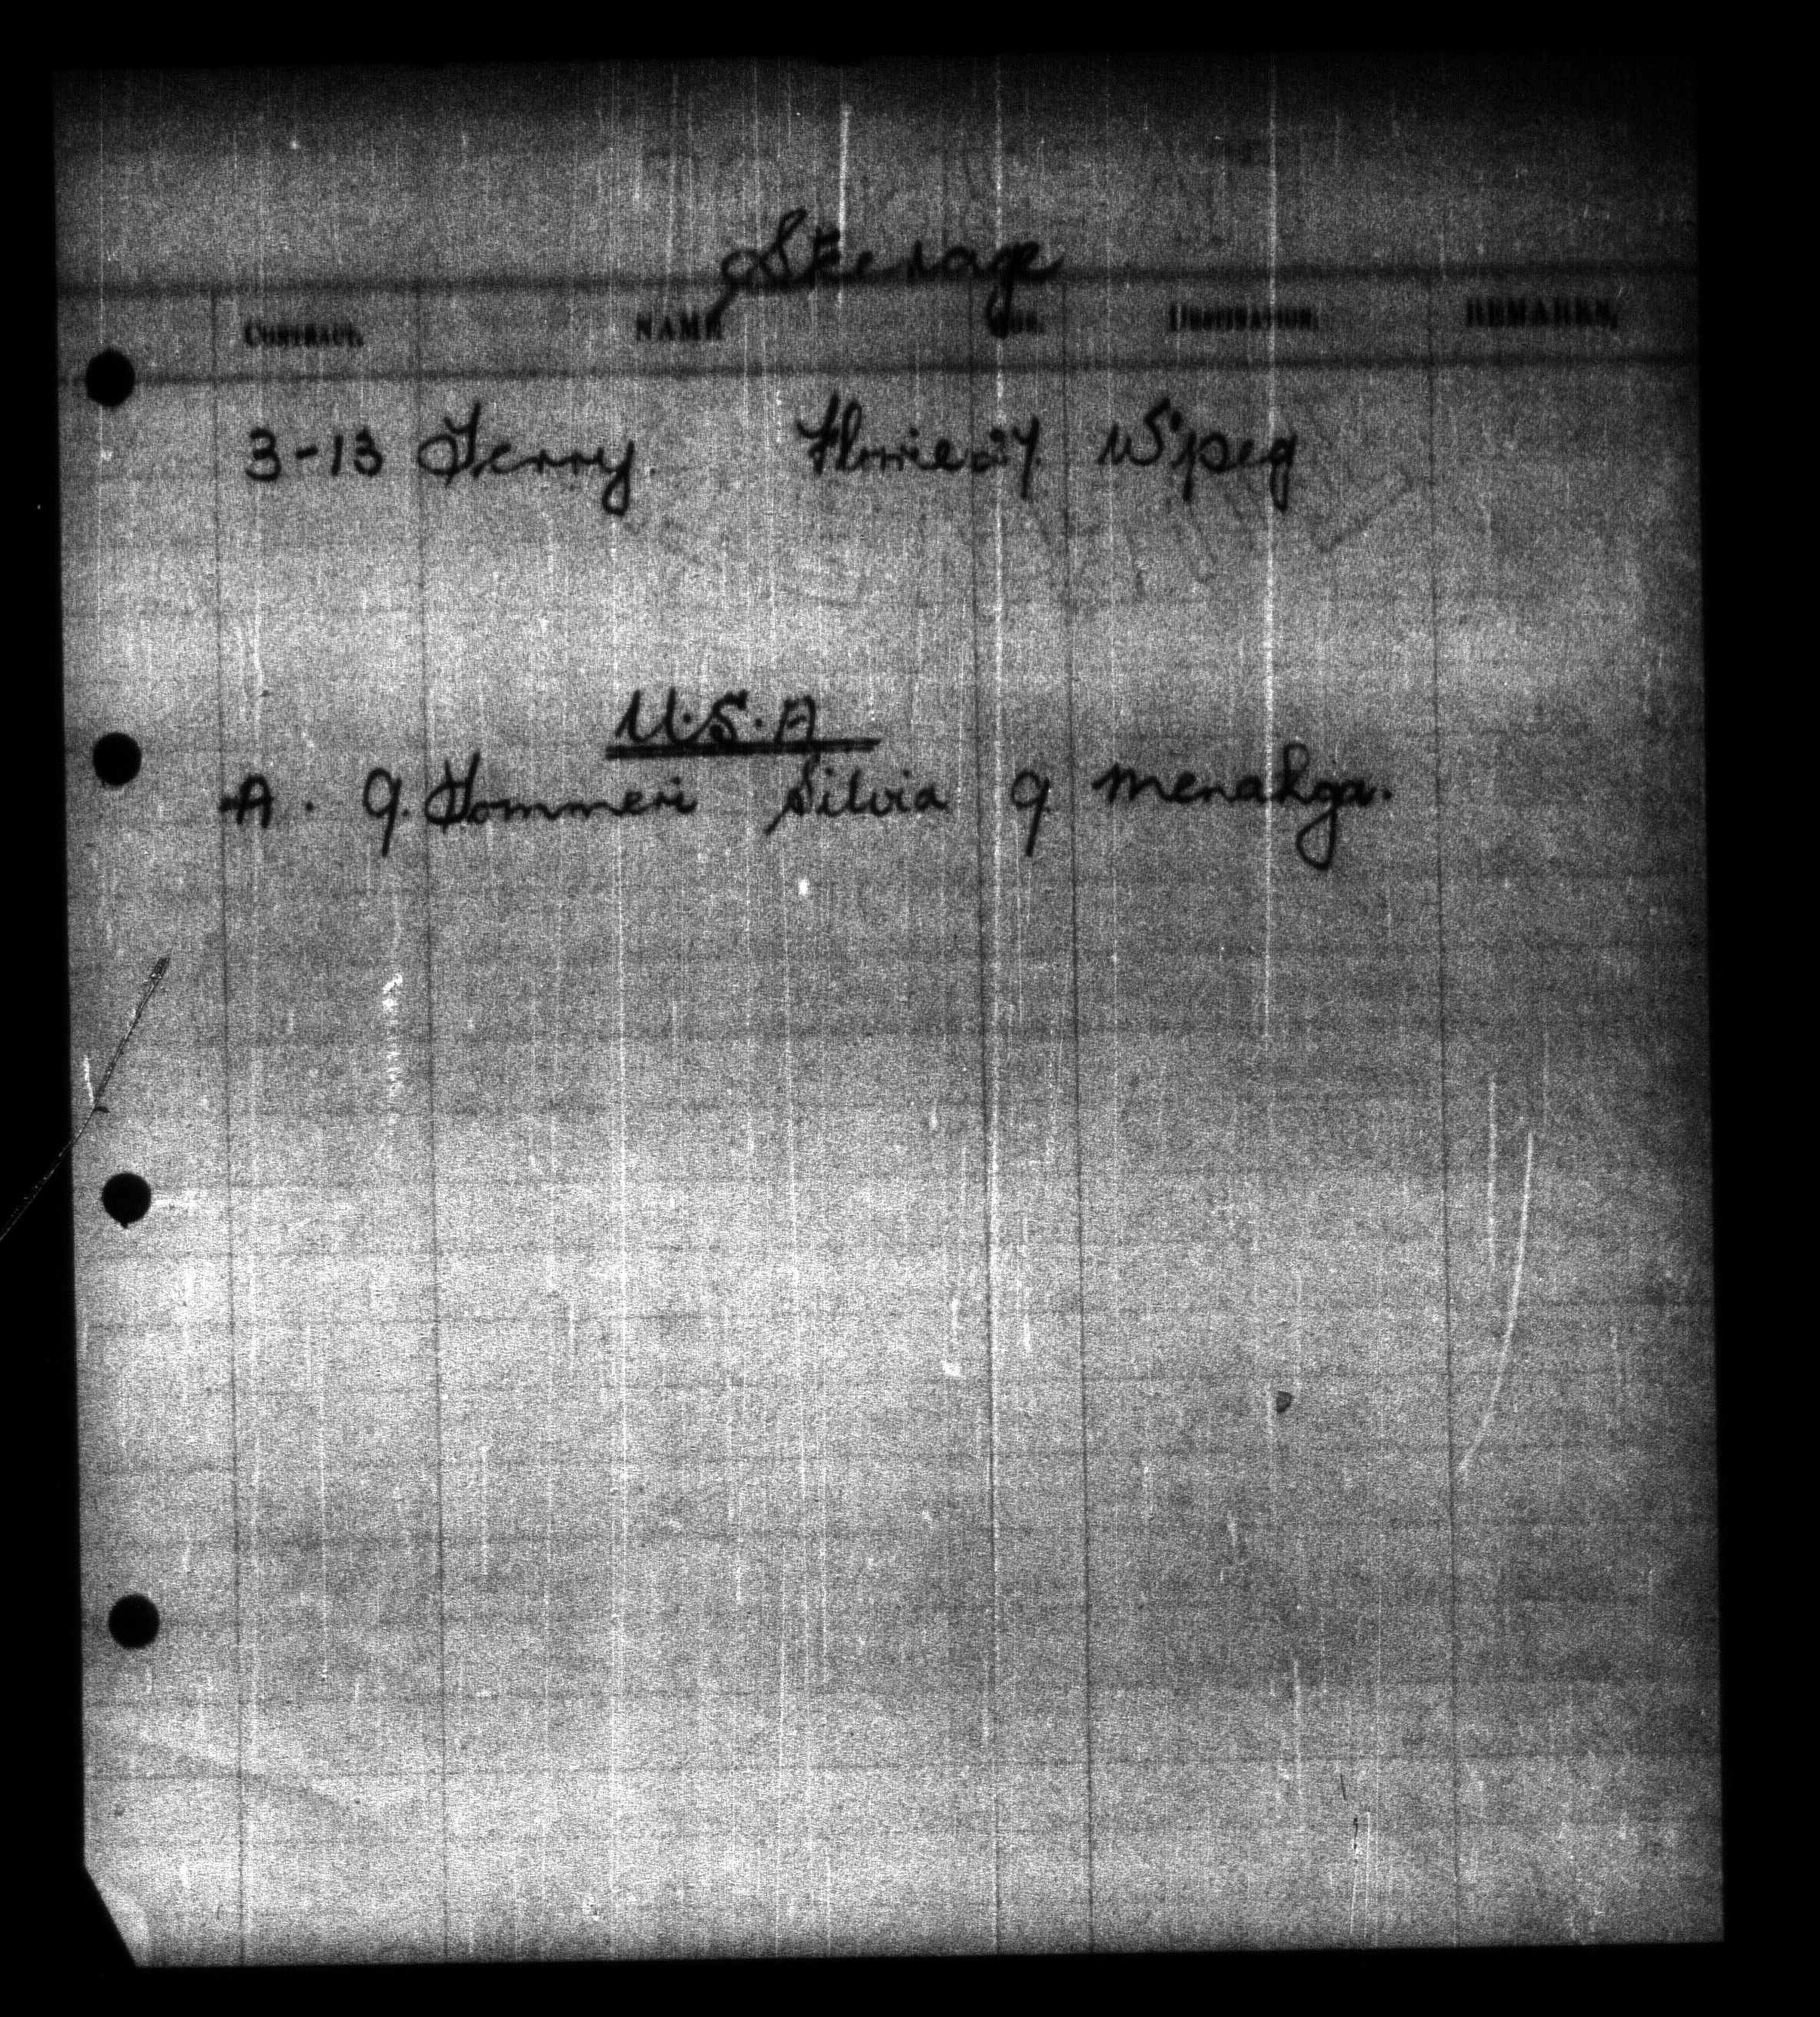 Steerage
CONTRACT. NAME AGE. DESTINATION. REMARKS.
3-13 Terry. Florrie 27. W'peg
U.S.A
A. 9. Tommeri Silvia 9 Menahga.